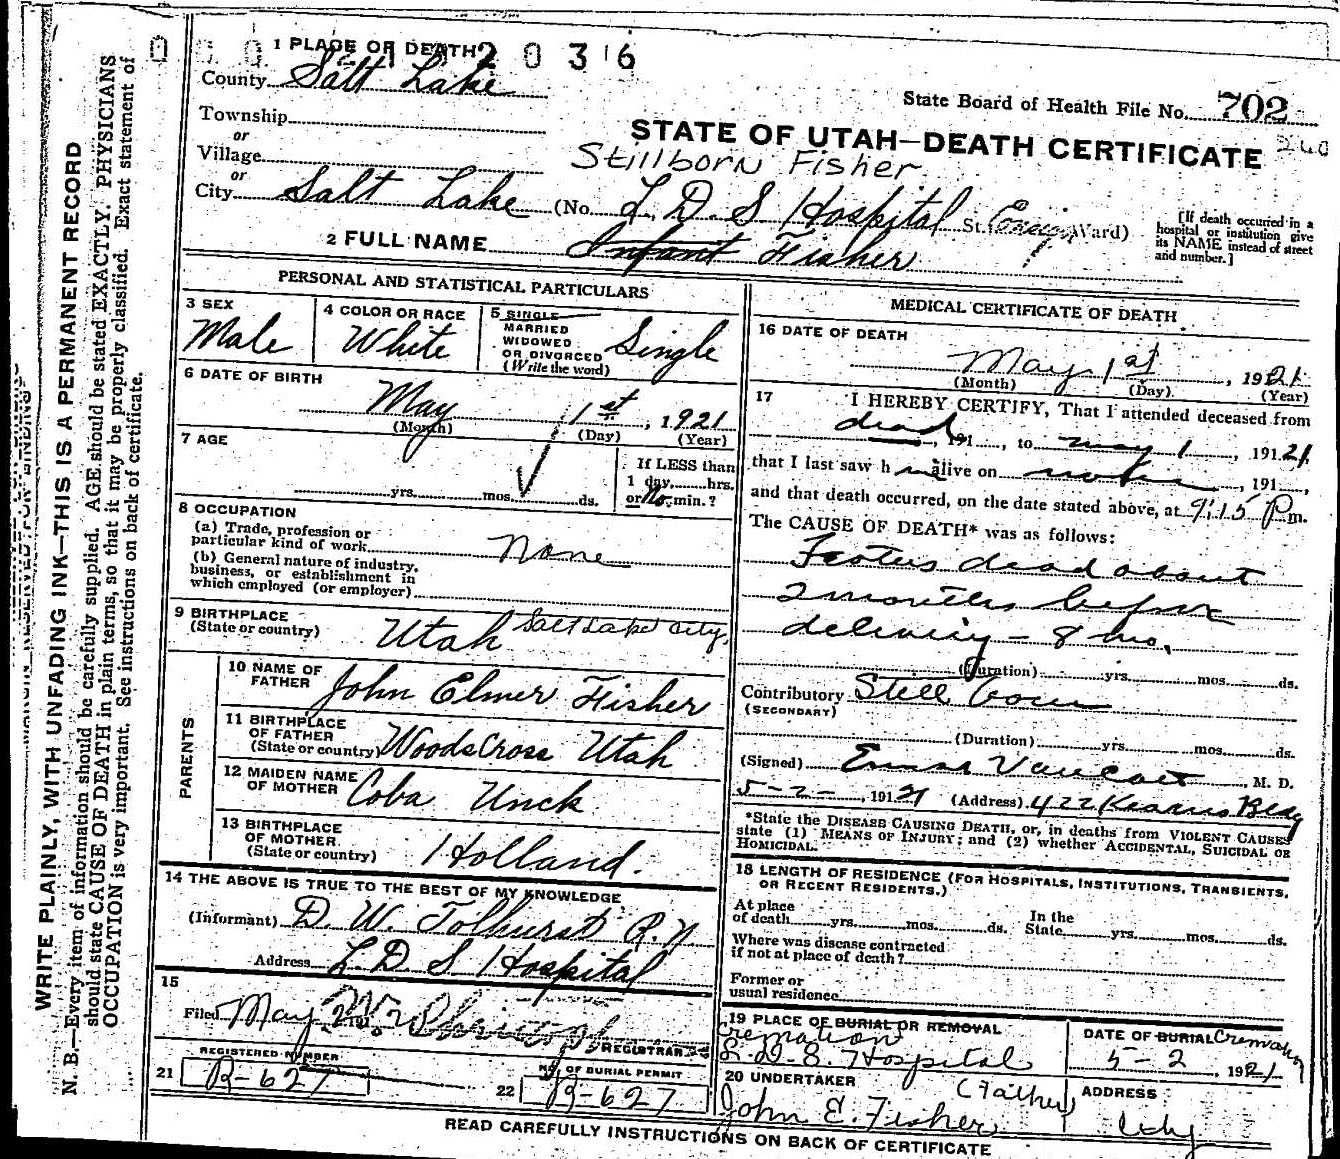 1 PLACE OF DEATH 2 0 3 1 6
County Salt Lake
State Board of Health File No. 702
Township
or
Village
or
City Salt Lake (No. L. D. S Hospital St. Ensign Ward)
[If death occurred in a hospital or institution give its NAME instead of street and number.]
STATE OF UTAH—DEATH CERTIFICATE
Stillborn Fisher
2 FULL NAME Infant Fisher
PERSONAL AND STATISTICAL PARTICULARS
3 SEX Male
4 COLOR OR RACE White
5 SINGLE MARRIED WIDOWED OR DIVORCED (Write the word) Single
6 DATE OF BIRTH
May 1st, 1921
(Month) (Day) (Year)
7 AGE
yrs. mos. ds.
If LESS than
1 day, hrs.
or No. min.?
8 OCCUPATION
(a) Trade, profession or
particular kind of work None
(b) General nature of industry,
business, or establishment in
which employed (or employer)
9 BIRTHPLACE
(State or country) Utah Salt Lake City,
PARENTS
10 NAME OF FATHER John Elmer Fisher
11 BIRTHPLACE OF FATHER (State or country) Woods Cross Utah
12 MAIDEN NAME OF MOTHER Coba Unck
13 BIRTHPLACE OF MOTHER (State or country) Holland.
14 THE ABOVE IS TRUE TO THE BEST OF MY KNOWLEDGE
(Informant) D. W. Tolhurst R. N.
Address L. D. S Hospital
15
Filed May 2
REGISTRAR
REGISTERED NUMBER
21 B-627
NO. OF BURIAL PERMIT
22 B-627
MEDICAL CERTIFICATE OF DEATH
16 DATE OF DEATH
May 1st, 1921
(Month) (Day) (Year)
17 I HEREBY CERTIFY, That I attended deceased from
dead, 191 , to May 1, 191 21,
that I last saw h m alive on , 191 ,
and that death occurred, on the date stated above, at 9:15 P m.
The CAUSE OF DEATH* was as follows:
Foetus dead about
2 months before
delivery – 8 mo.
(Duration) yrs. mos. ds.
Contributory Still born
(SECONDARY)
(Duration) yrs. mos. ds.
(Signed) , M. D.
5-2-, 191 21 (Address) 422 Kearns Bldg
*State the DISEASE CAUSING DEATH, or, in deaths from VIOLENT CAUSES
state (1) MEANS OF INJURY; and (2) whether ACCIDENTAL, SUICIDAL OR
HOMICIDAL.
18 LENGTH OF RESIDENCE (FOR HOSPITALS, INSTITUTIONS, TRANSIENTS,
OR RECENT RESIDENTS.)
At place of death yrs. mos. ds. In the State yrs. mos. ds.
Where was disease contracted
if not at place of death?
Former or
usual residence
19 PLACE OF BURIAL OR REMOVAL
Cremation
L. D. S. Hospital
DATE OF BURIAL Cremation
5-2, 1921
20 UNDERTAKER (Father)
John E. Fisher
ADDRESS
City
READ CAREFULLY INSTRUCTIONS ON BACK OF CERTIFICATE
WRITE PLAINLY, WITH UNFADING INK—THIS IS A PERMANENT RECORD
N. B.—Every item of information should be carefully supplied. AGE should be stated EXACTLY. PHYSICIANS
should state CAUSE OF DEATH in plain terms, so that it may be properly classified. Exact statement of
OCCUPATION is very important. See instructions on back of certificate.